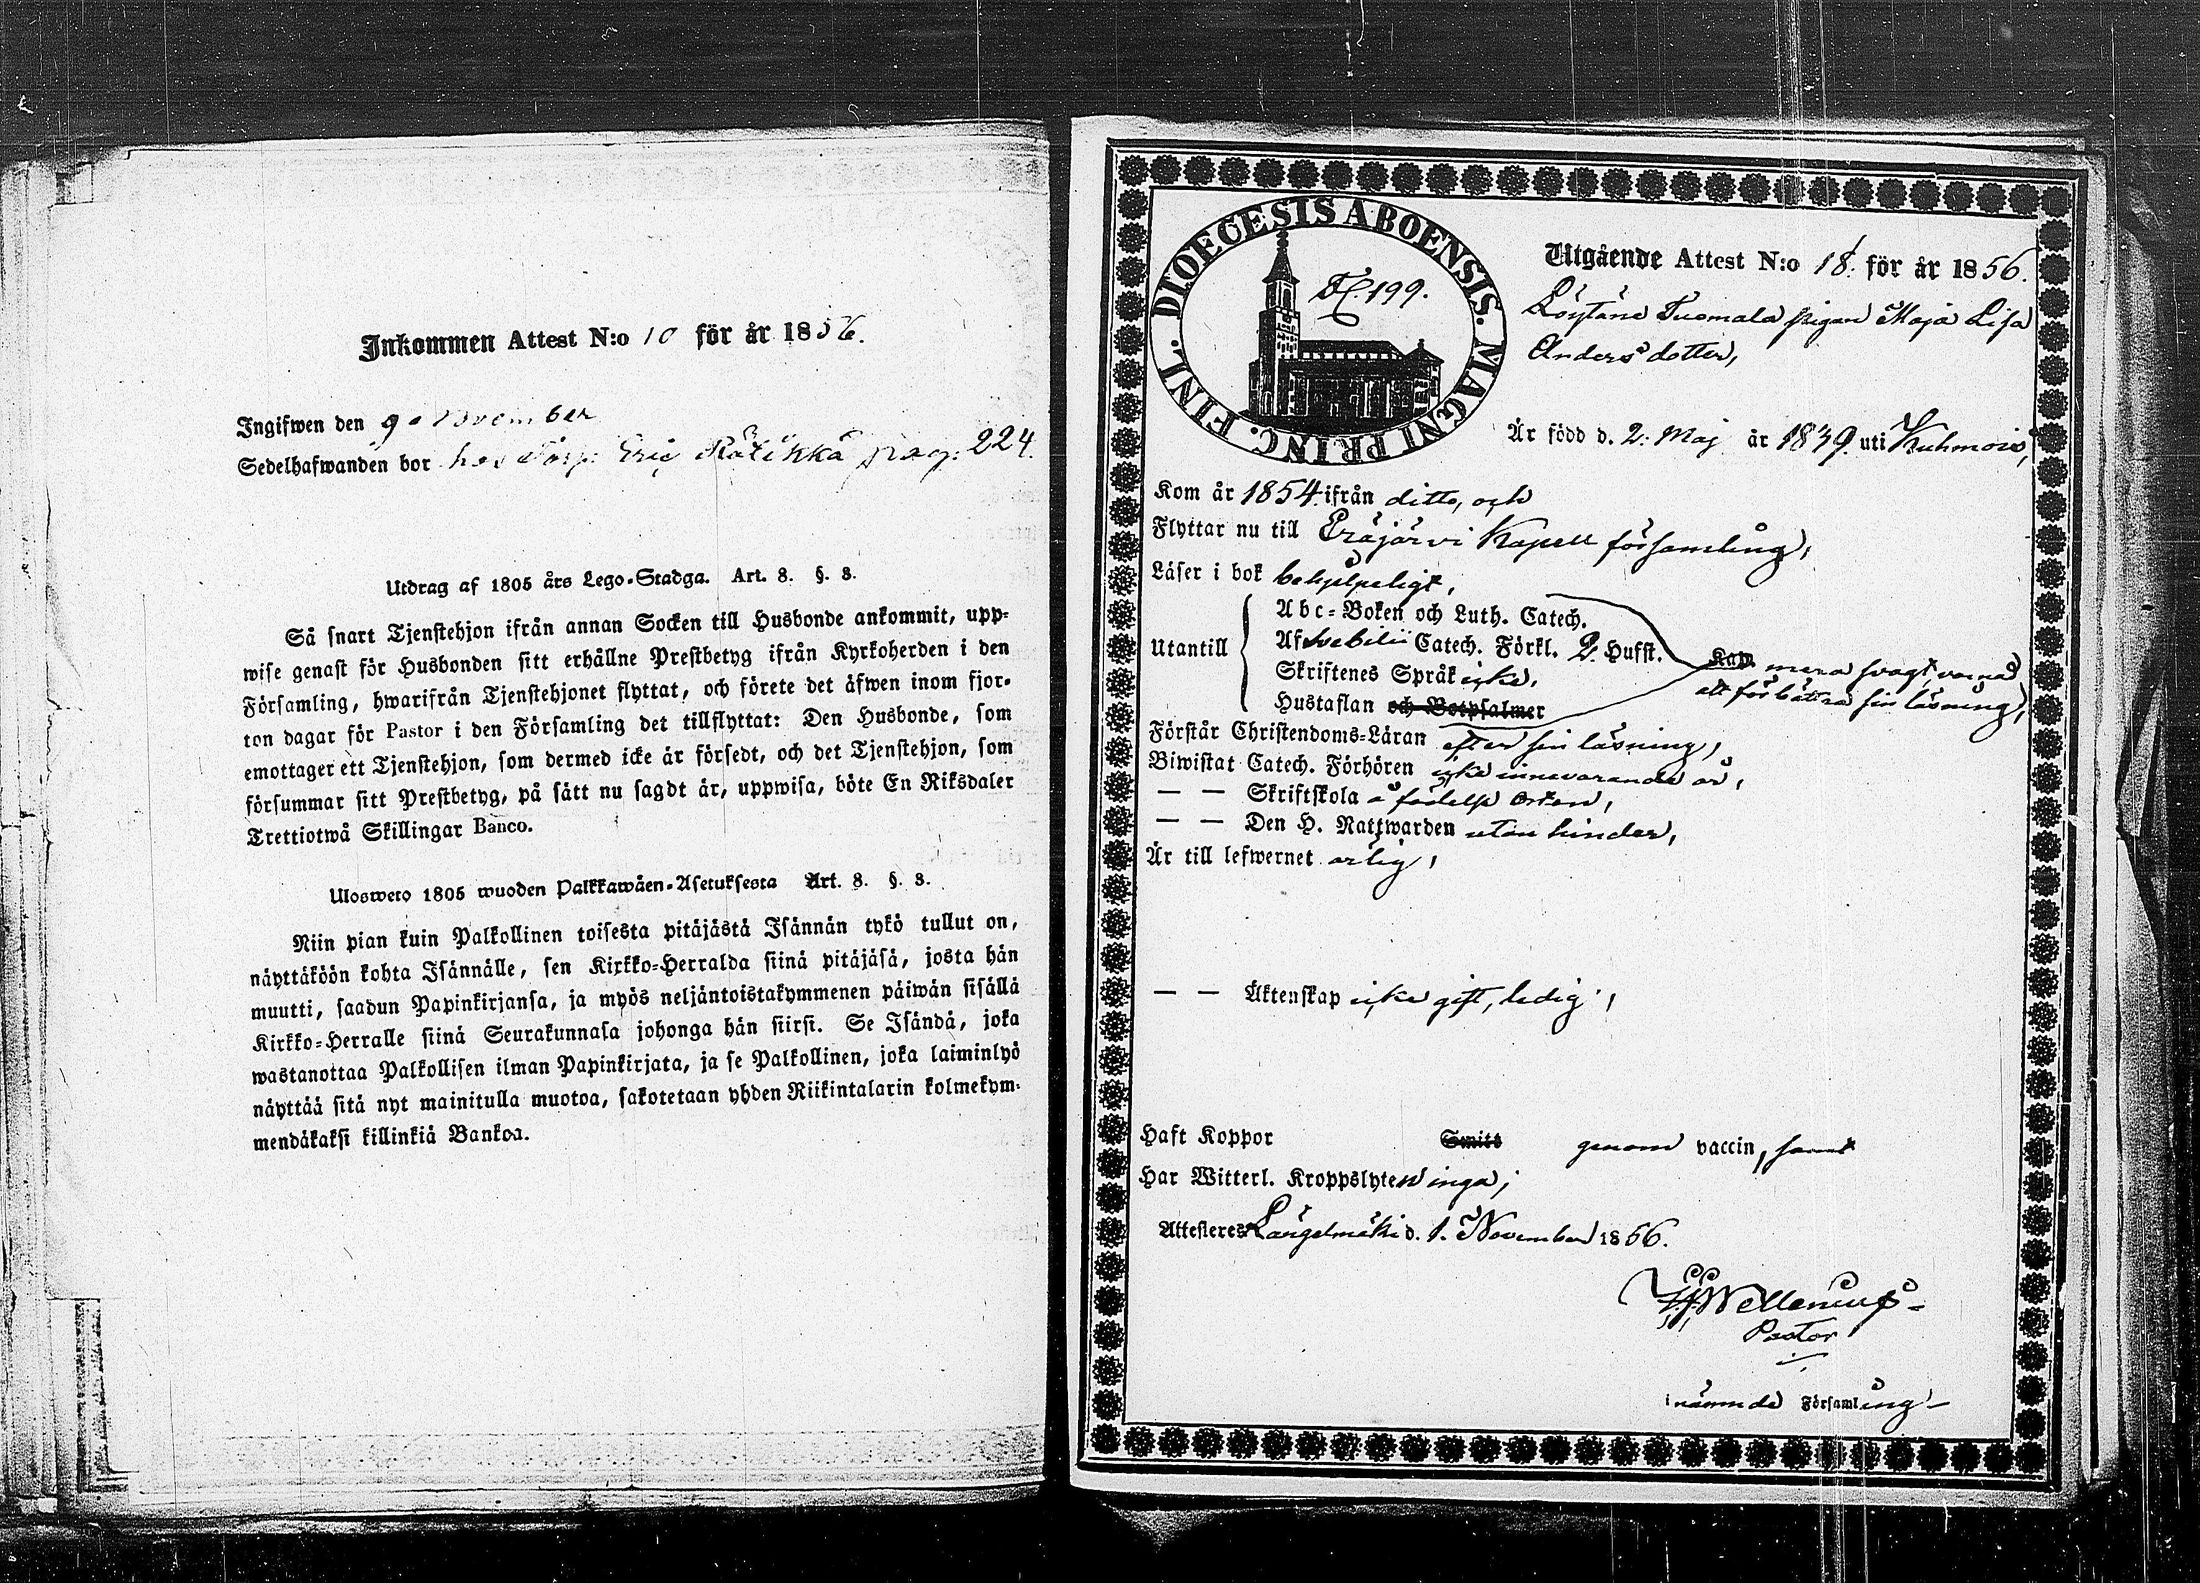 Inkommen Attest N:o 10 för år 1856.
Ingifwen den 9 November
Sedelhafwanden bor hos Torp: Eric Rälikkä pag: 224.
Utdrag af 1805 års Lego-Stadga. Art. 8. §. 8.
Så snart Tjenstehjon ifrån annan Socken till Husbonde ankommit, upp-
wise genast för Husbonden sitt erhållne Prestbetyg ifrån Kyrkoherden i den
Församling, hwarifrån Tjenstehjonet flyttat, och förete det äfwen inom fjor-
ton dagar för Pastor i den Församling det tillflyttat: Den Husbonde, som
emottager ett Tjenstehjon, som dermed icke är försedt, och det Tjenstehjon, som
försummar sitt Prestbetyg, på sätt nu sagdt är, uppwisa, böte En Riksdaler
Trettiotwå Skillingar Banco.
Ulosweto 1805 wuoden Palkkawäen-Asetuksesta Art. 8. §. 8.
Niin pian kuin Palkollinen toisesta pitäjästä Isännän tykö tullut on,
näyttäköön kohta Isännälle, sen Kirkko-Herralda siinä pitäjäsä, josta hän
muutti, saadun Papinkirjansa, ja myös neljäntoistakymmenen päiwän sisällä
Kirkko-Herralle siinä Seurakunnasa johonga hän siirsi. Se Isändä, joka
wastanottaa Palkollisen ilman Papinkirjata, ja se Palkollinen, joka laiminlyö
näyttää sitä nyt mainitulla muotoa, sakotetaan yhden Riikintalarin kolmekym-
mendäkaksi killinkiä Bankoa.
DIOECESIS ABOENSIS. MAGNI PRINC. FINL.
199.
Utgående Attest N:o 18. för år 1856.
Löytäne Tuomala pigan Maja Lisa
Anders dotter,
Är född d. 2: Maj år 1839. uti Kuhmois,
Kom år 1854. ifrån ditto, och
Flyttar nu till Eräjärvi Kapell församling,
Läser i bok behjelpeligt,
Utantill
Abc-Boken och Luth. Catech.
Af Svebilii Catech. Förkl. 2. Hufst.
Skriftenes Språk icke,
Hustaflan och Botpsalmer
Kap. mera svagt, varnad
att förbättra sin läsning,
Förstår Christendoms-Läran efter sin läsning,
Biwistat Catech. Förhören icke innevarande år,
— — Skriftskola å födelse orten,
— — Den H. Nattwarden utan hinder,
Är till lefwernet ärlig,
— — Äktenskap icke gift, ledig,
Haft Koppor Smitt genom vaccin, samt
Har Witterl. Kroppslyten inga;
Attesteres Längelmäki d. 1. November 1856.
Wellenius
Pastor
i nämnde Församling